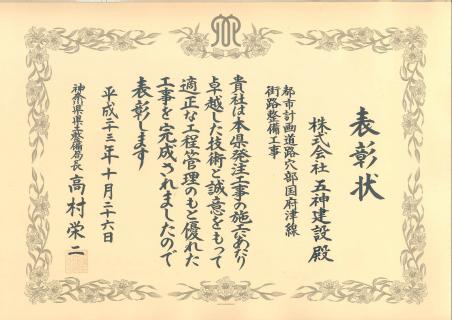 表彰状
株式会社 五神建設 殿
都市計画道路穴部国府津線
街路整備工事
貴社は本県発注工事の施工にあたり
卓越した技術と誠意をもって
適正な工程管理のもと優れた
工事を完成されましたので
表彰します
平成二十三年十月二十六日
神奈川県県土整備局長 高村栄二